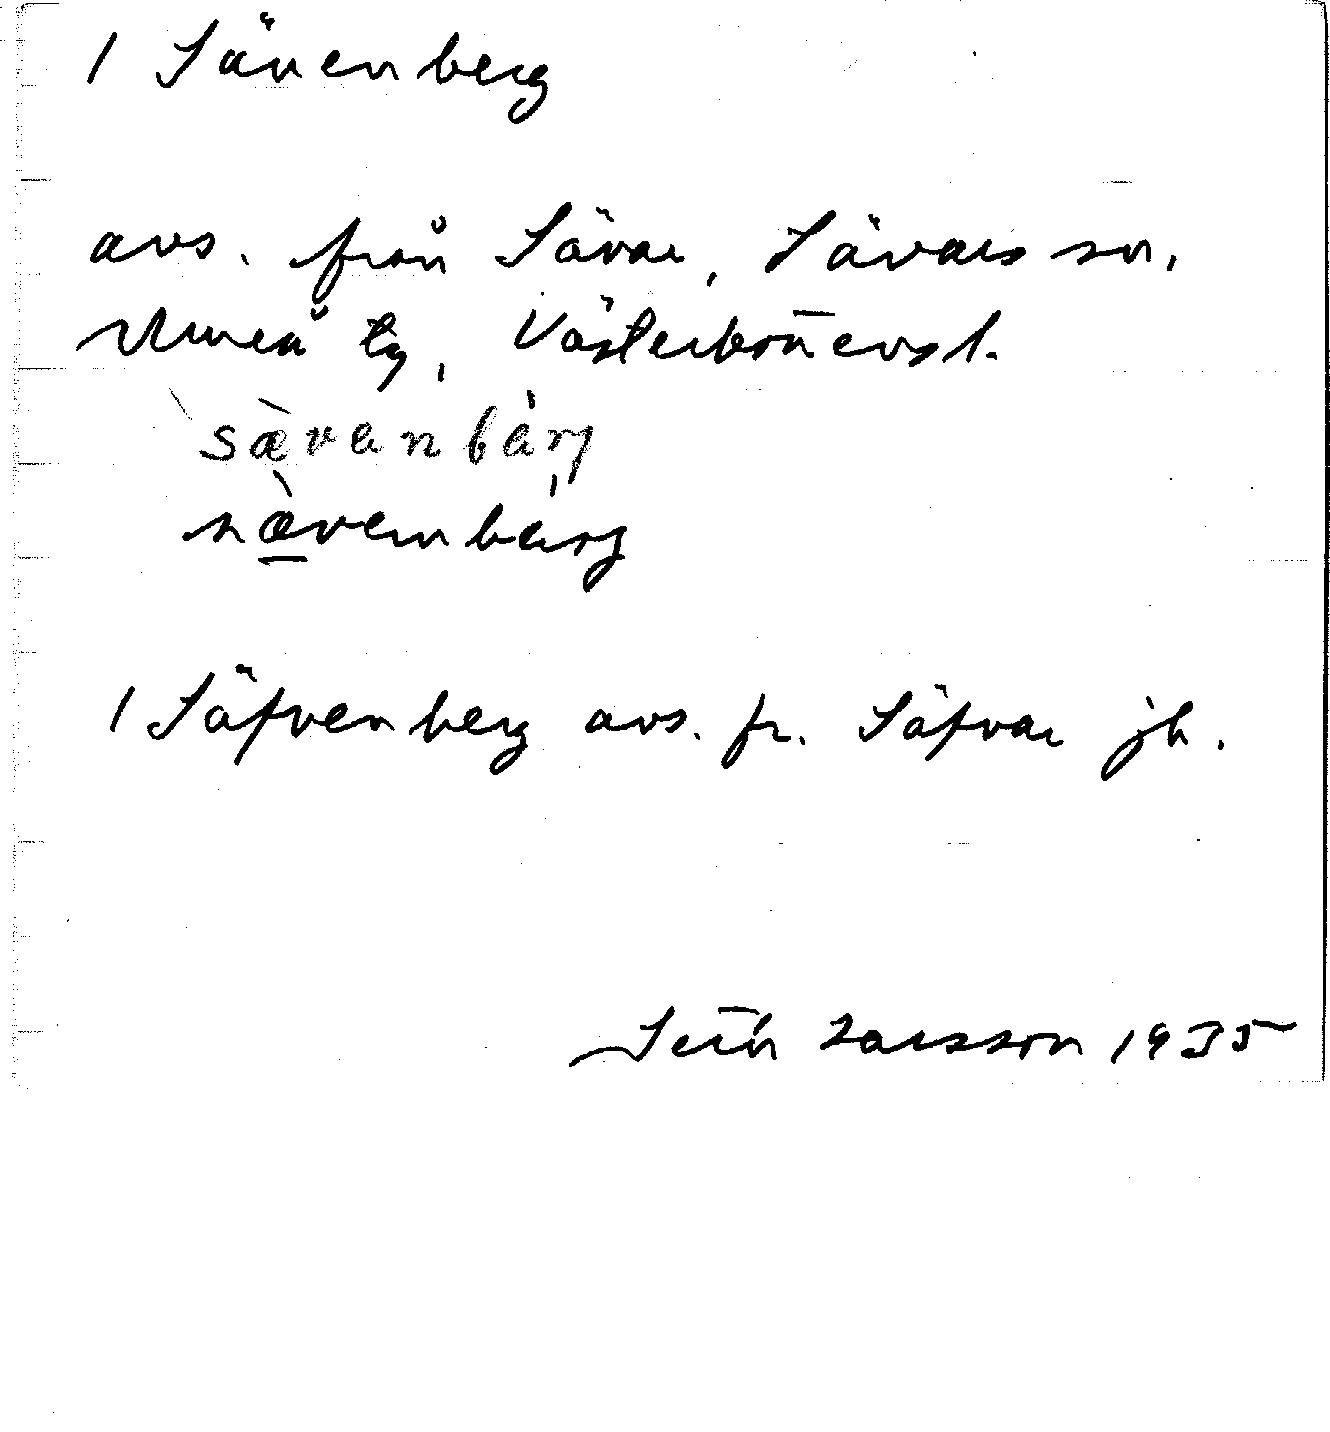 1 Sävenberg
avs. från Sävar, Sävars sn,
Umeå tg, Västerbottensl.
sæ̀vanbárj
sæ̀venbárj
1 Säfvenberg avs. fr. Säfvar jb.
Larsson 1935